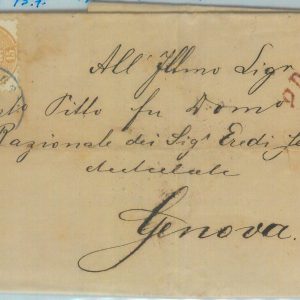 15.7.
15
All' Illmo Sigr
Pitto fu Domo
Razionale dei Sigi Eredi
Genova.